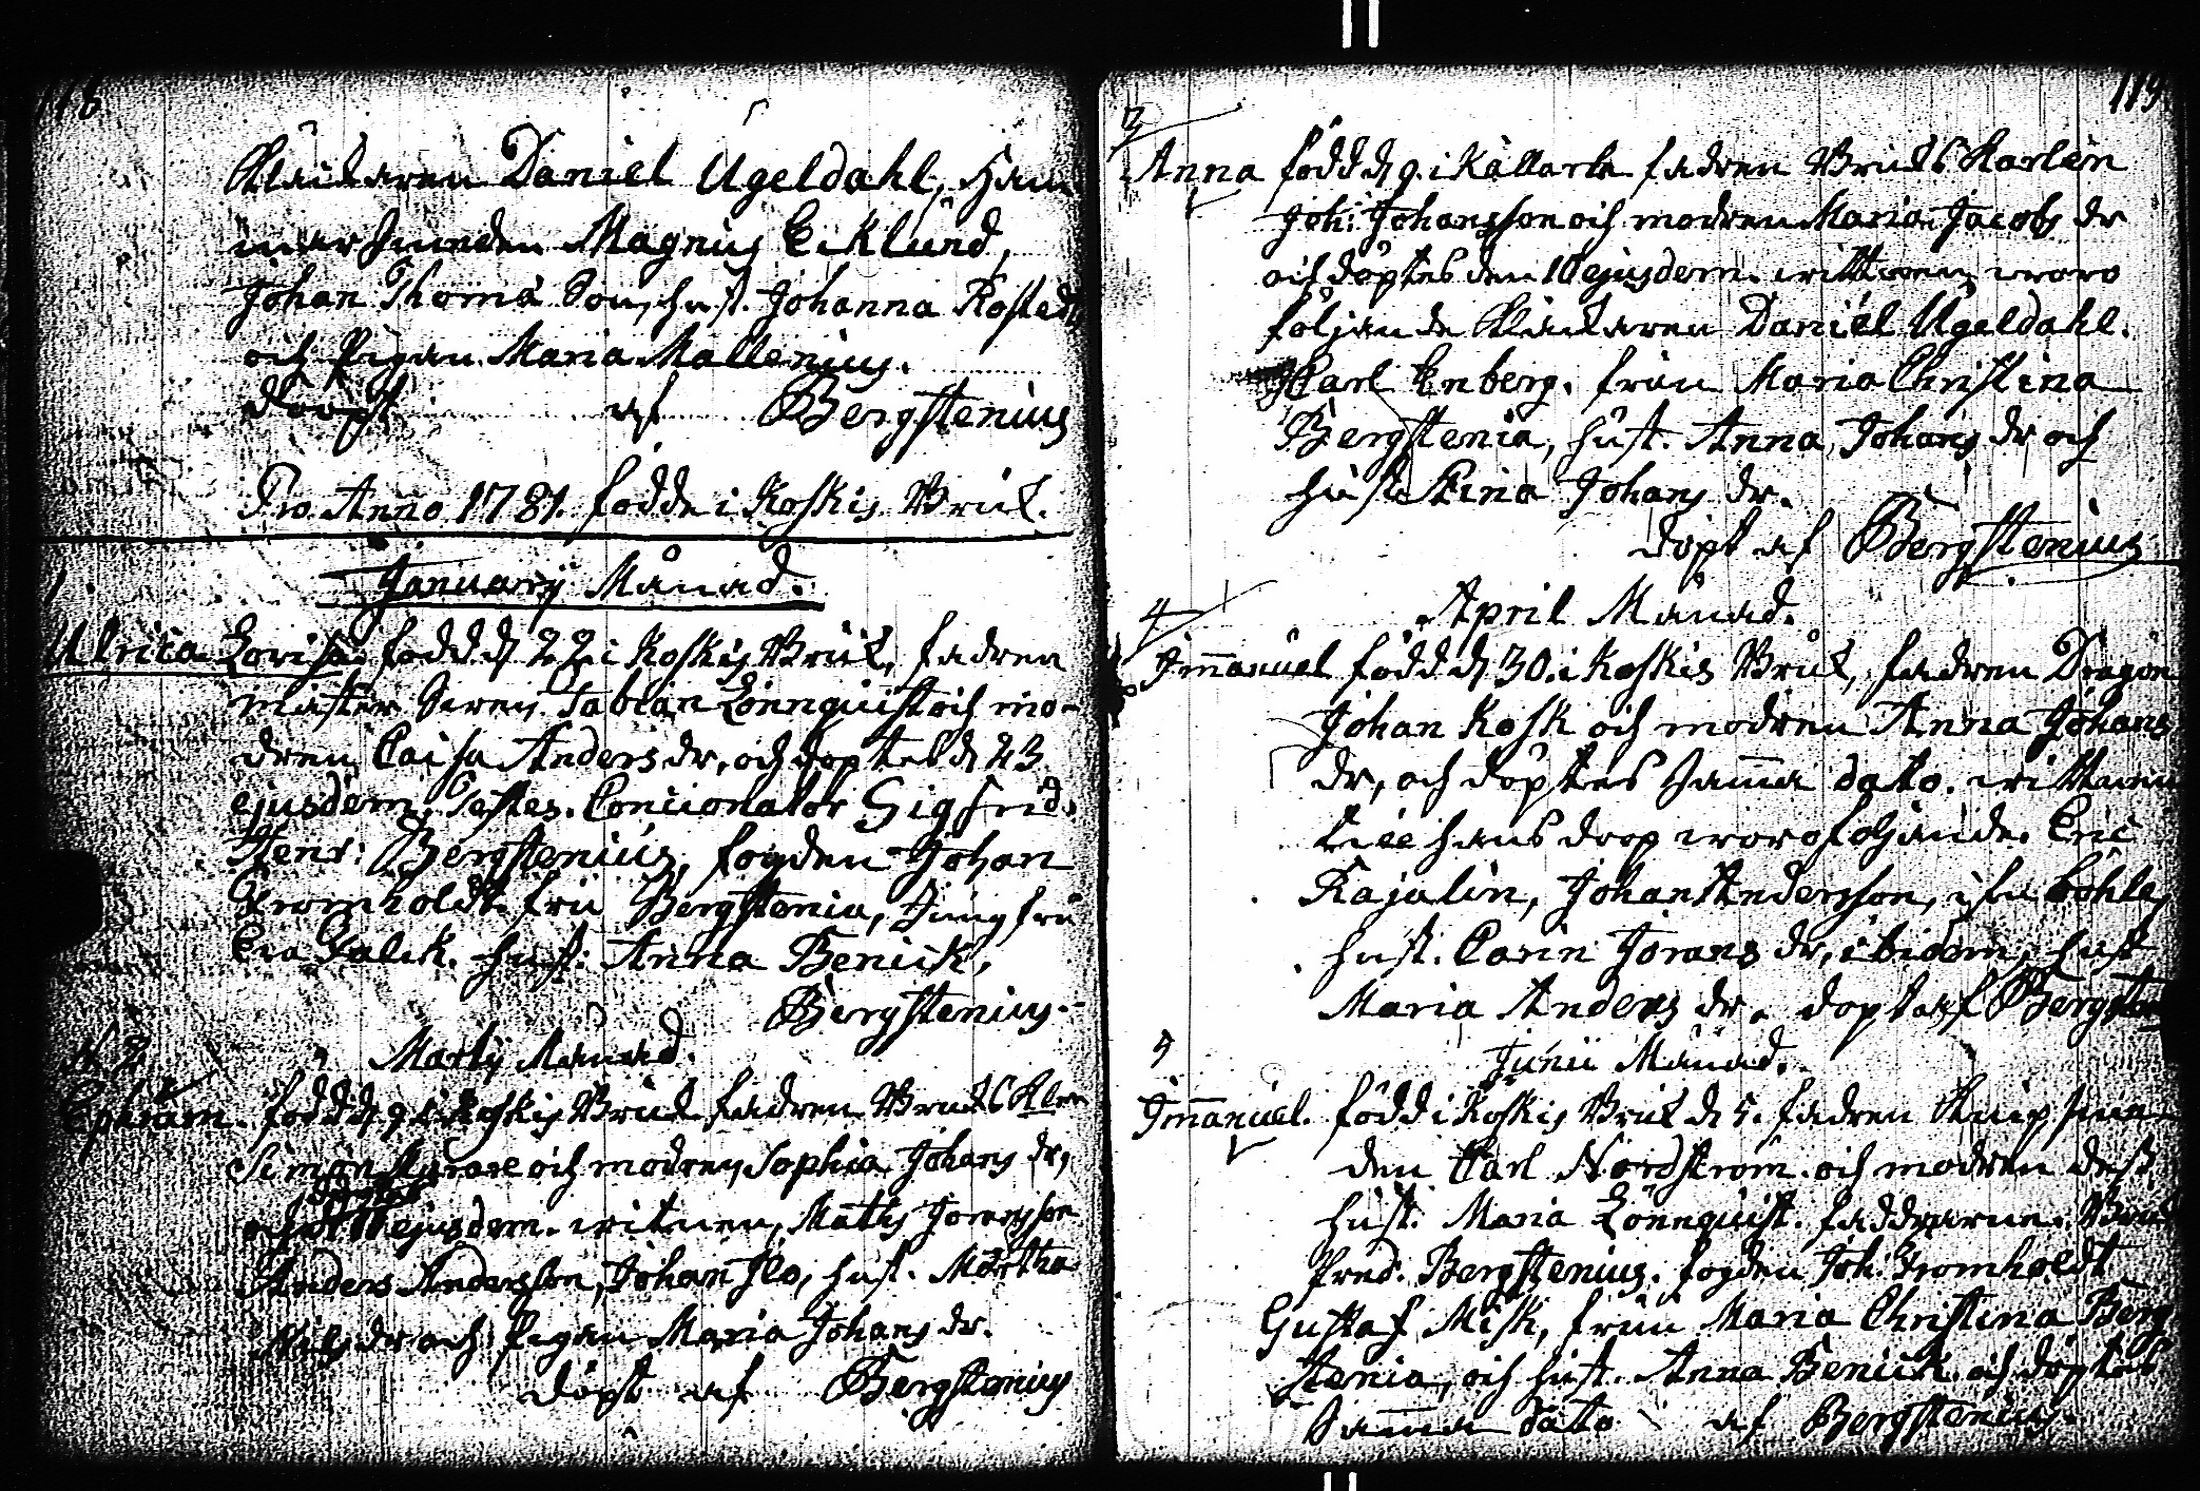 118
Klåckaren Daniel Ugeldahl, Ham
mar smeden Magnus Ecklund,
Johan Thomæ Son, hust. Johanna Rostedt
och Pigan Maria Mallenius.
döpt af Bergstenius
Pro Anno 1781. födde i Koskis Bruk.
January Månad.
1.
Ulrica Lovisa född d 22 i Koskis Bruk, fadren
mäster Sven Fabian Lönnquist och mo-
dren Caisa Anders dr, och döptes d 23
ejusdem. Testes. Concionator Sigfrid
Henr: Bergstenius, fogden Johan
Gromholdt fru Bergstenia, Jungfru
Eva Falck. hust: Anna Benick,
Bergstenius.
N. 2
Marty Månad.
Ephraim. född d 9 i Koskis Bruk fadren Bruks
Simon och modren Sophia Johans dr,
döptes
och d 11 ejusdem. witnen, Matts Joransson
Anders Andersson, Johan Ilo, hust. Märtha
Nils dr och Pigan Maria Johans dr.
döpt af Bergstenius
119
3
Anna född d 9. i Källarla fadren Bruks Karlen
Joh: Johansson och modren Maria Jacobs dr
och döptes den 10 ejusdem. wittnen woro
följande Klåckaren Daniel Ugeldahl.
Carl Enberg. frun Maria Christina
Bergstenia, hust. Anna Johans dr och
hust. Stina Johans dr.
döpt af Bergstenius
4
April Månad.
Immanuel född d 30. i Koskis Bruk, fadren Dragon
Johan Kosk och modren Anna Johans
dr, och döptes samma dato. wittnen
till hans dop woro följande. Eric
Rajalin, Johan Andersson, ifrå Böhle,
hust. Carin Jörans dr, ibidem, hust
Maria Anders dr. döpt af Bergsten
5
Junii Månad.
Immanuel. född i Koskis Bruk d 5. fadren Knip sme
den Carl Nordström. och modren dess
hust. Maria Lönnquist. faddrarne. Bruks
Pred. Bergstenius. fogden Joh. Gromholdt
Gustaf Misk, frun Maria Christina Berg
stenia, och hust. Anna Benick och döptes
samma dato af Bergstenius.